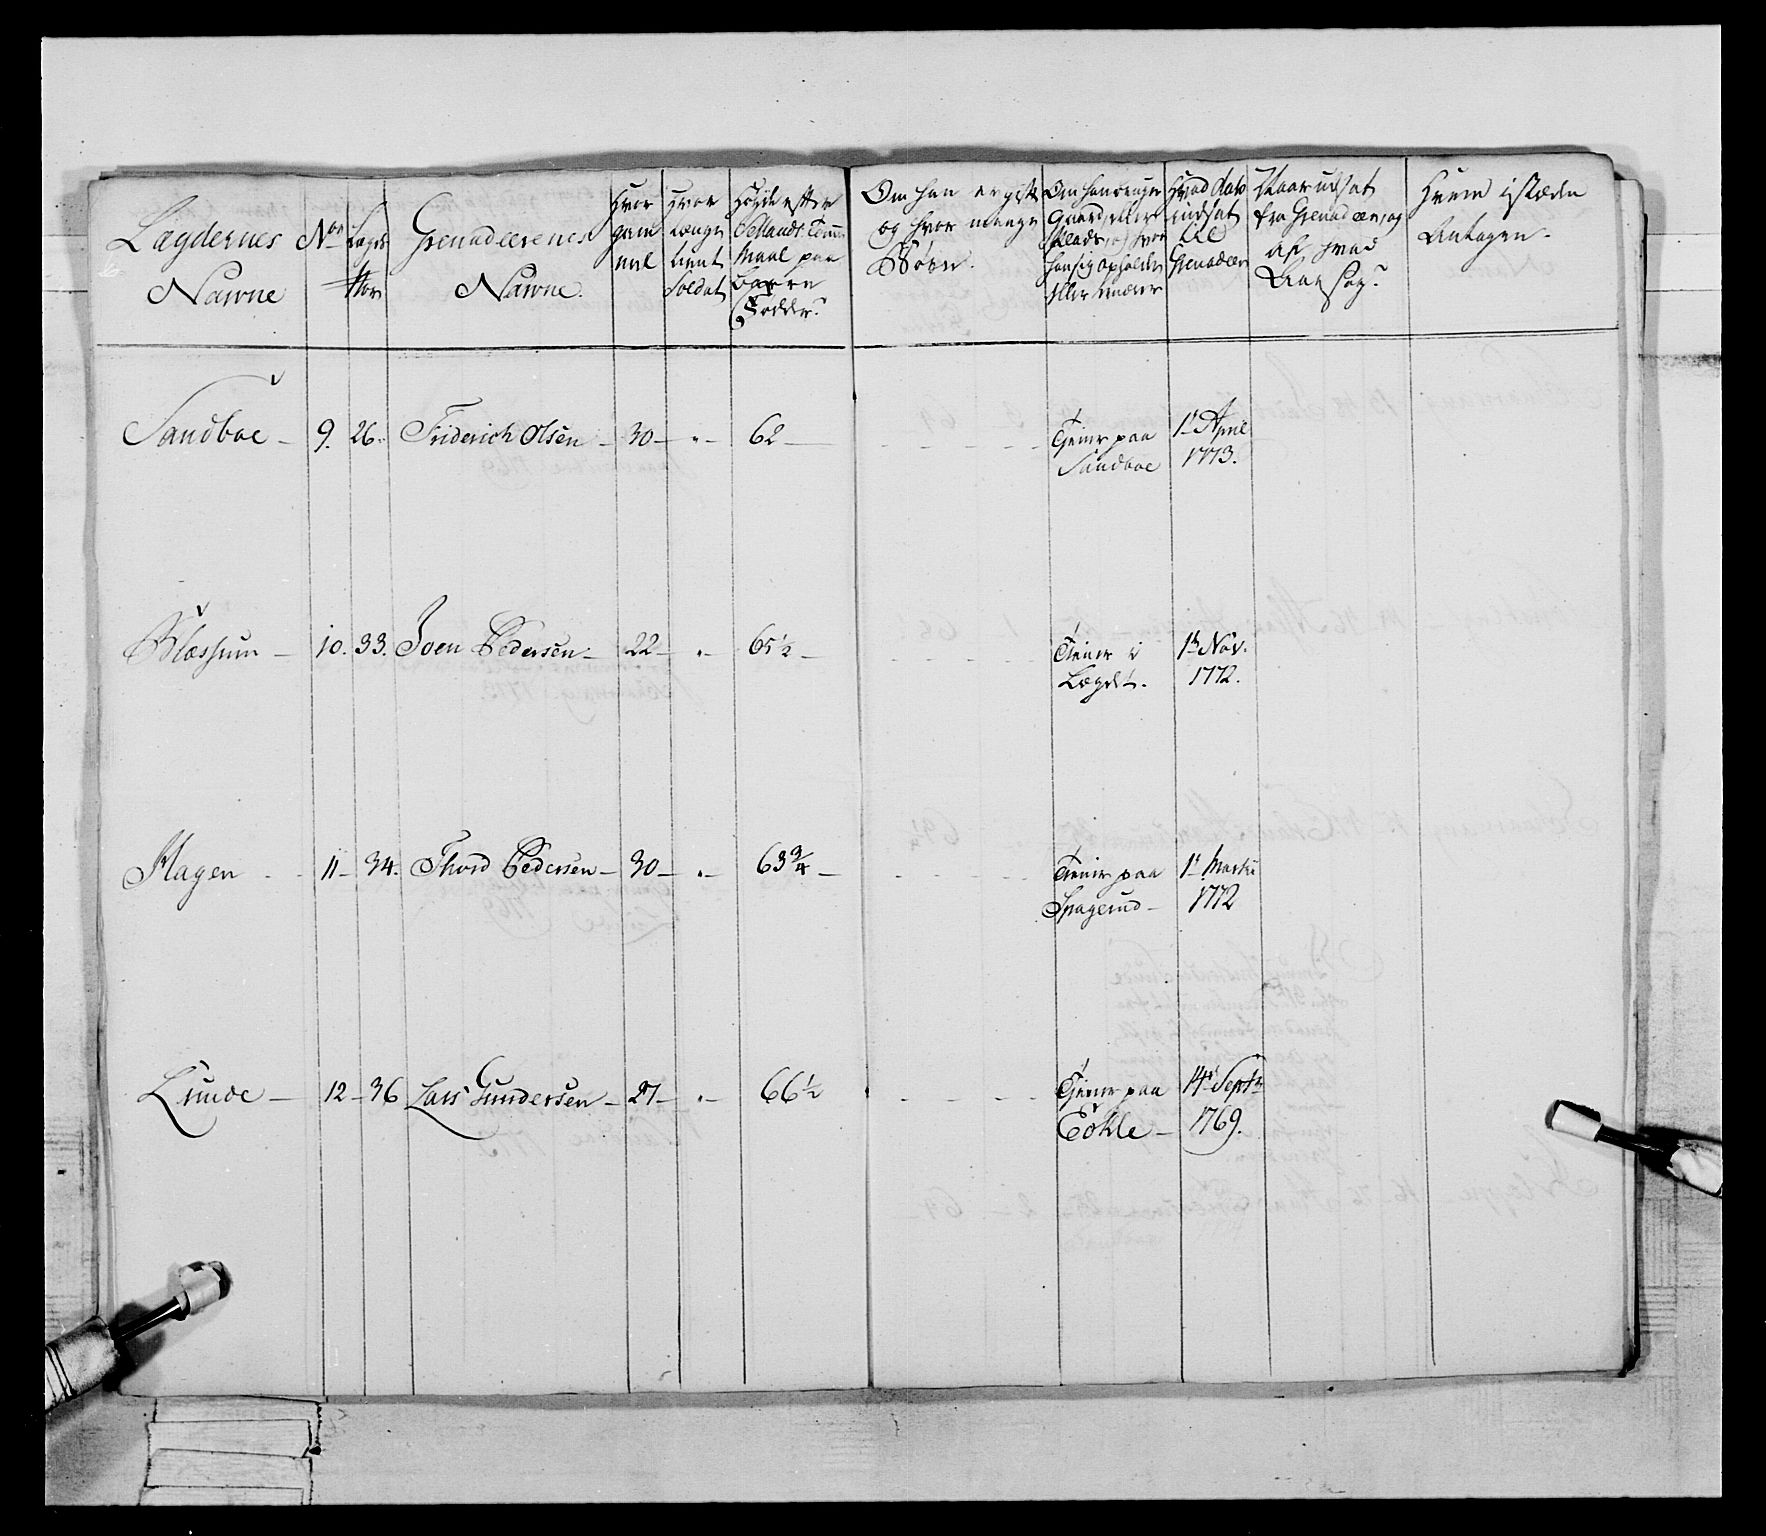 Lægdernes
Nawne
No
Lægds
Nor
Grenadeerenes
Nawne.
Hvor
gam
mel
Hvor
længe
tient
Soldat
Høyde efter
Sellands Tomme
Maal paa
barre
Fødder?
Om han er gift
og hvor mange
Børn.
Om han bruger
Gaard, eller
Plads, og hvor
han sig opholder
eller
Hvad dato
indsat
til
Grenadeer
Naar udsat
fra Grenadeer, og
af hvad
Aarsag?
Hvem i stæden
Antagen.
Sandboe - 9. 26. Friderich Olsen - 30 - " - 62 - Tiener paa 1t April
Sandboe 1773.
Blæssum - 10. 33. Joen Pedersen - 22 - " - 65½ - Tiener i 1t Nov.
Lægdet. 1772.
Hagen - 11 - 34. Thord Pedersen - 30 - " - 63¾ - Tiener paa 1t Martii
Spagerud - 1772
Lunde - 12 - 36 Lars Gundersen - 27 - " - 66½ Tiener paa 14t Septr
Eokle - 1769.